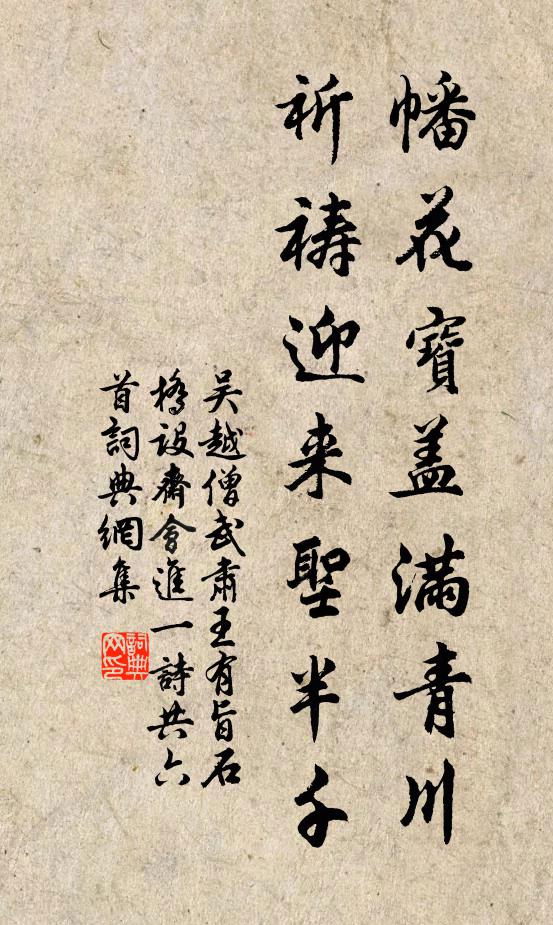 幡花寶蓋滿青川
祈禱迎来聖半千
吴越僧武肅王有旨石
橋設齋會進一詩共六
首詞典網集
詞典網印